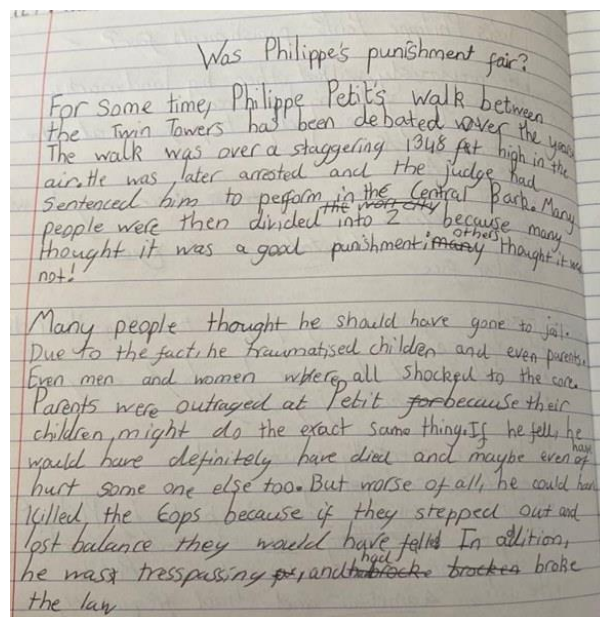 Was Philippe's punishment fair?
For some time, Philippe Petit's walk between
the Twin Towers has been debated over the years
The walk was over a staggering 1348 feet high in the
air. He was later arrested and the judge had
sentenced him to perform in the Central Bark. Many
people were then divided into 2 because many
thought it was a good punishment; others thought it was
not!
Many people thought he should have gone to jail.
Due to the fact, he traumatised children and even parents.
Even men and women where all shocked to the core.
Parents were outraged at Petit because their
children, might do the exact same thing. If he fell, he
would have definitely have died and maybe even have
hurt some one else too. But worse of all, he could have
killed, the Cops because if they stepped out and
lost balance they would have fell. In adition,
he was tresspassing, and had broke
the law